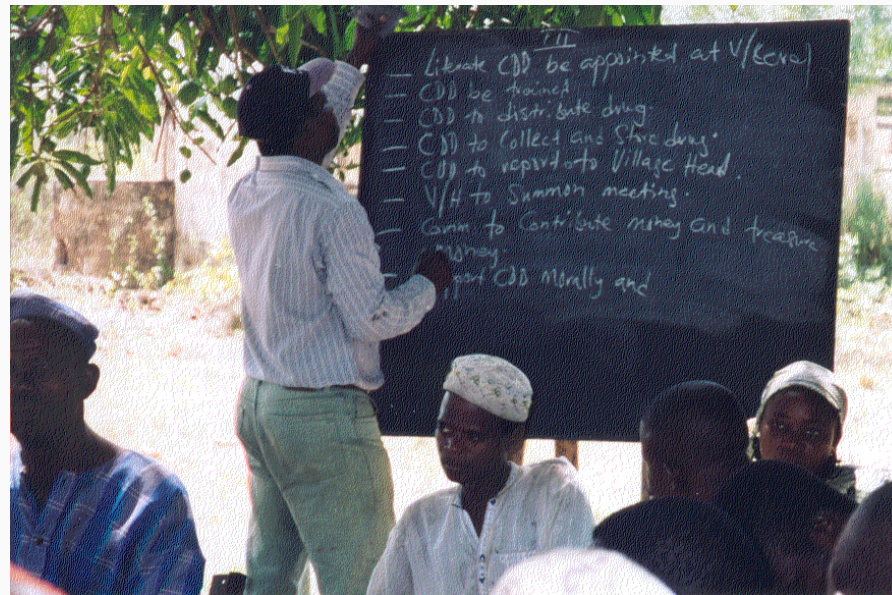 III
— Literate CDD be appointed at V/Level
— CDD be trained
— CDD to distribute drug.
— CDD to Collect and Store drug.
— CDD to report to Village Head.
— V/H to Summon meeting.
— Comm to Contribute money and treasure
money.
CDD Morally and